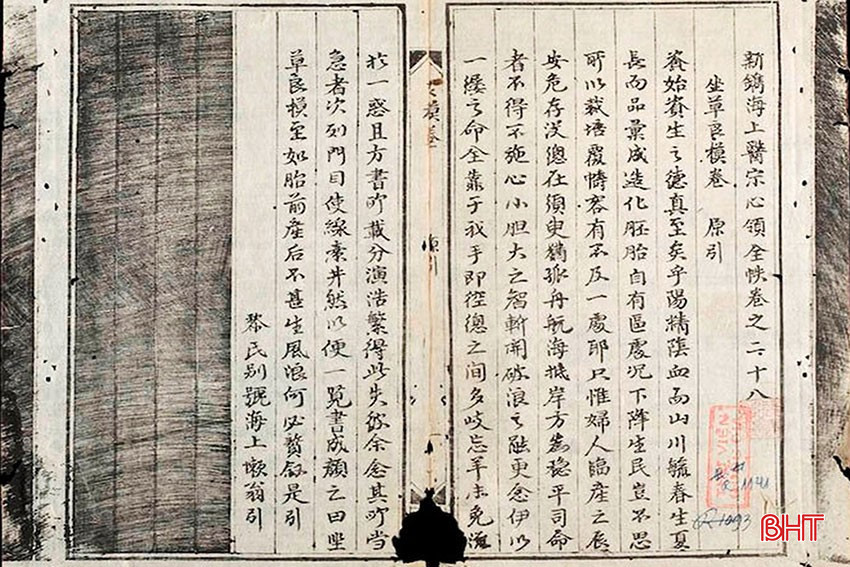 新鐫海上醫宗心領全帙卷之二十八
坐草良模卷 原引
資始資生之德真至矣乎陽精陰血而山川毓春生夏
長而品彙成造化胚胎自有區處况下降生民豈不思
所以栽培覆幬容有不及一處耶只惟婦人臨產之辰
安危存没總在須臾猶孤舟航海抵岸方為穩平司命
者不得不施心小胆大之智斬開破浪之融更念伊以
一縷之命全靠于我手即徑總之間多岐忘羊未免滋
模卷 原引
於一惑且方書所載分演浩繁得此失彼余念其所當
急者次列門目使線索井然以便一覧書成顏之曰坐
草良模至如胎前產后不甚生風浪何必贅叙是引
黎民别號海上懶翁引
1141
1093
BHT